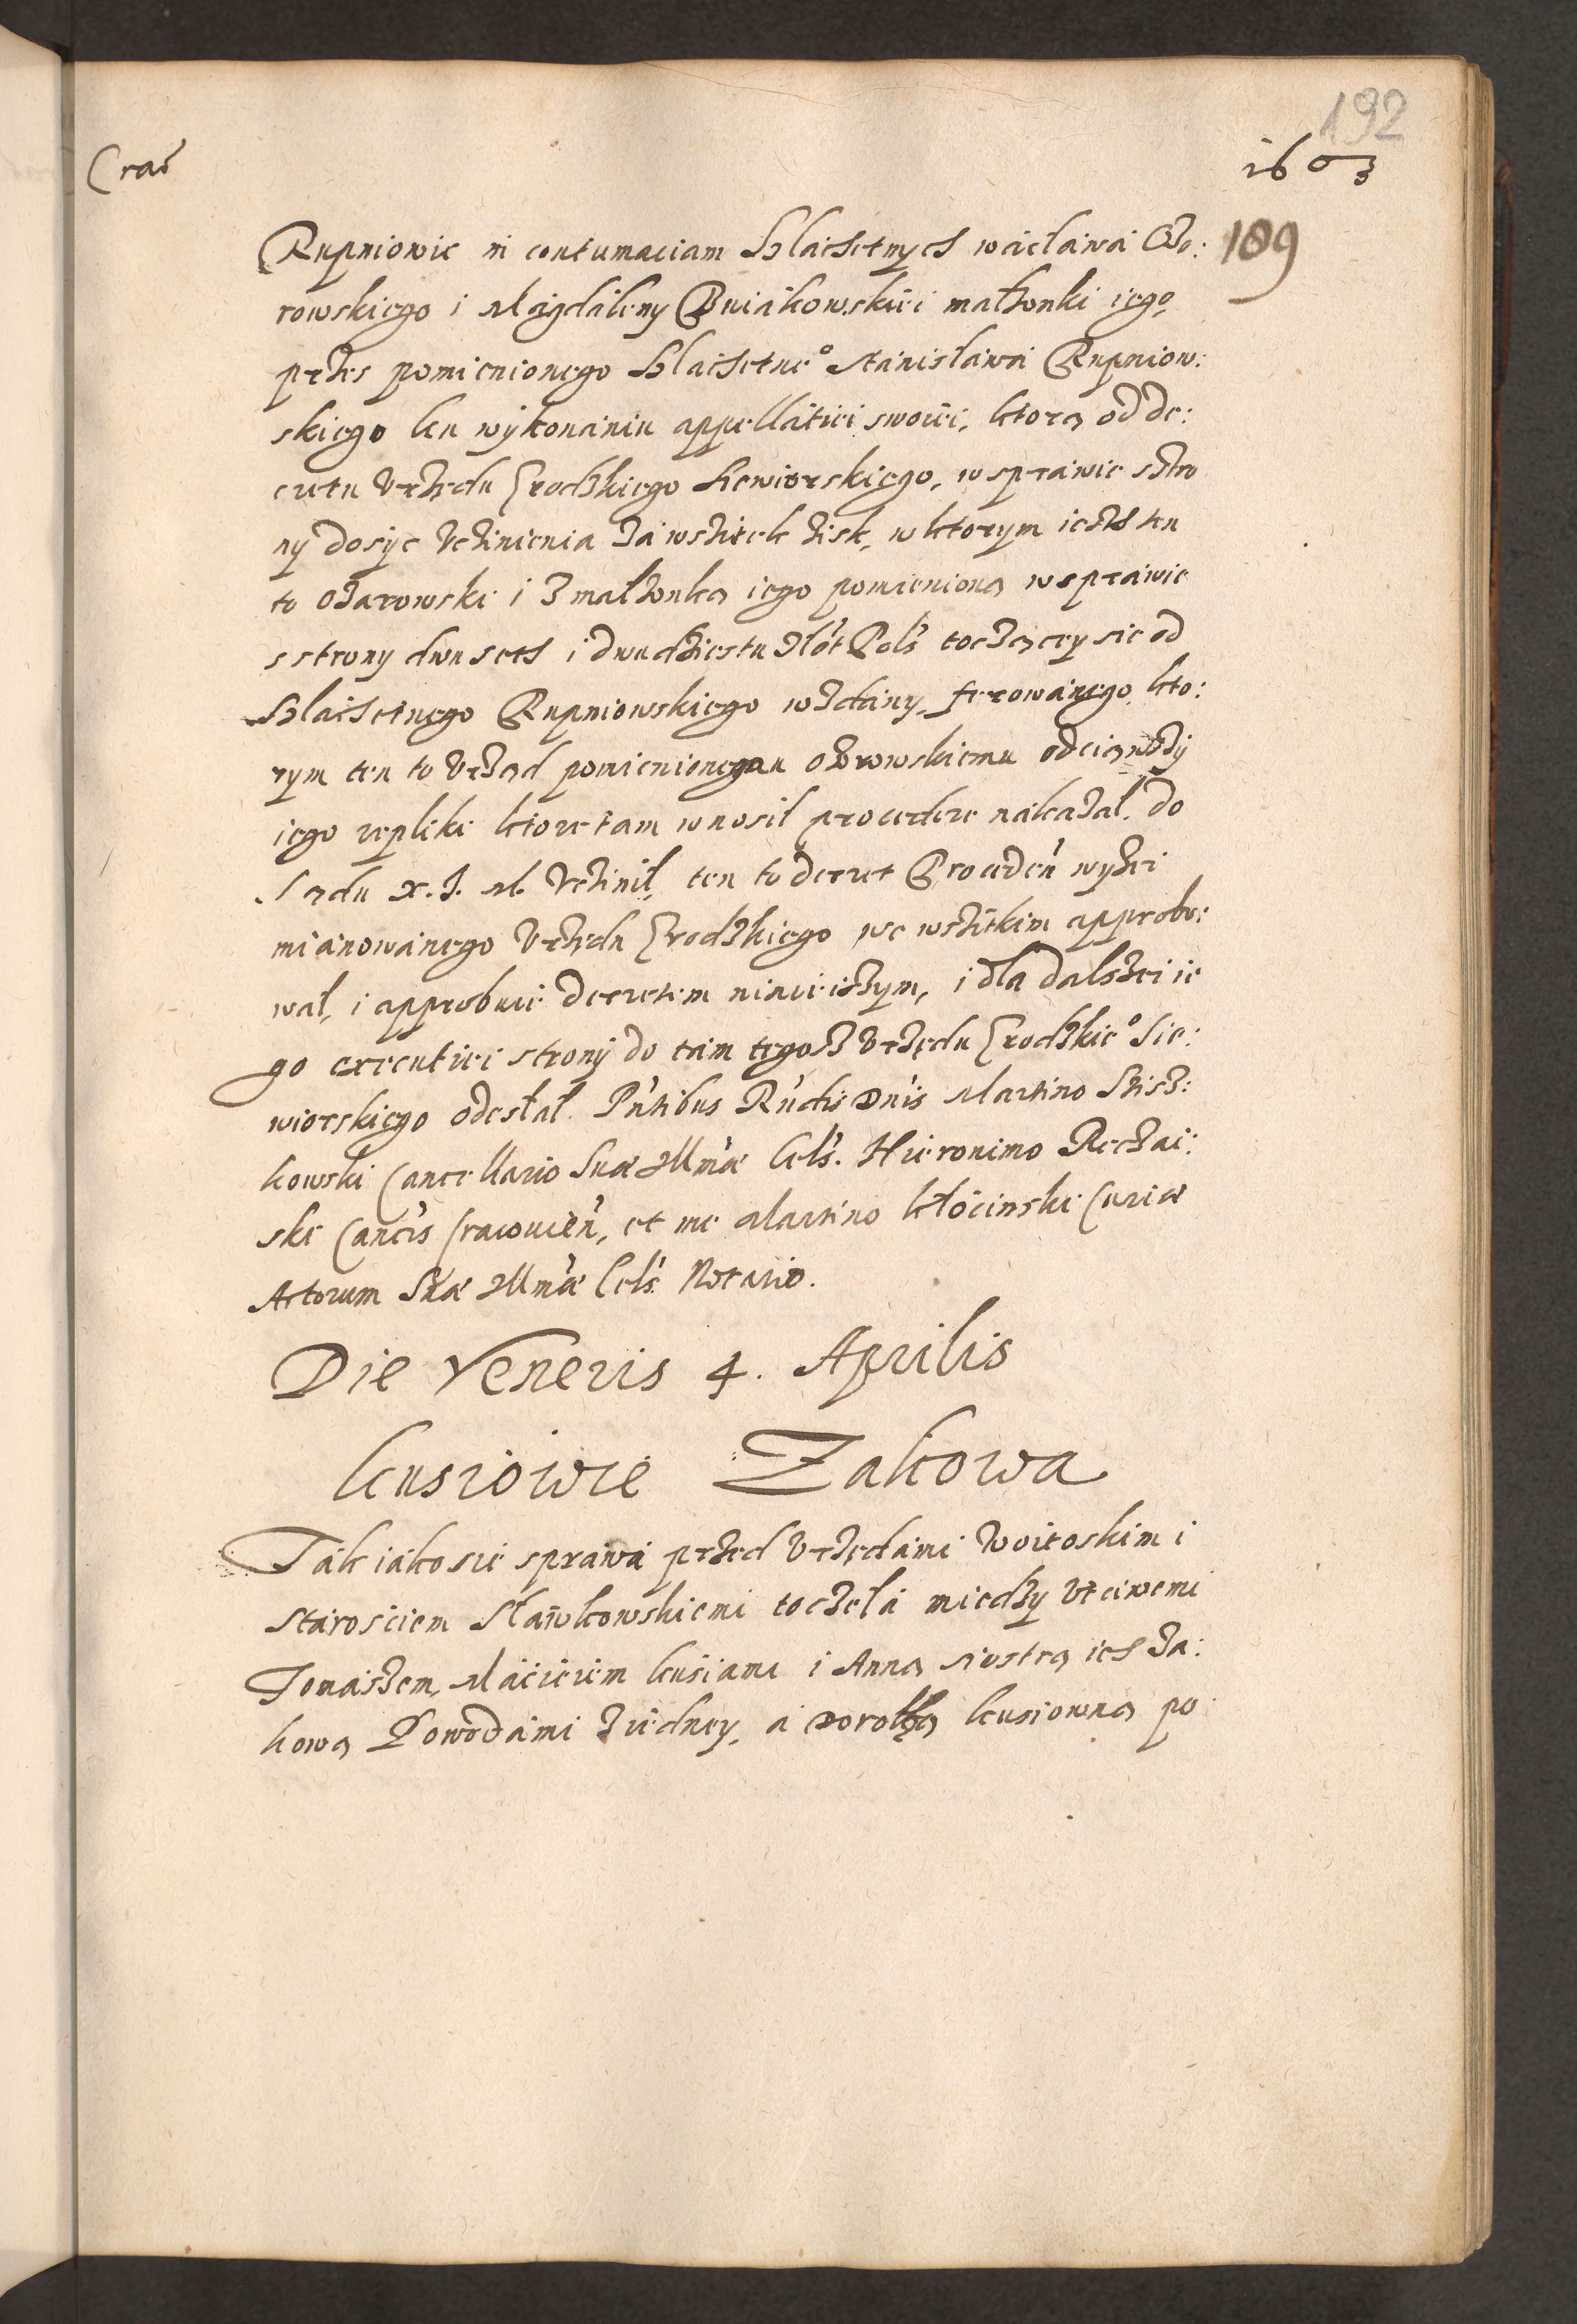 192
Crac̃ 1603
Rupniowie in contumaciam Szlachetnych wacława Ożo: 189
rowskiego i Magdaleny Bniakowskiei małżonki iego,
przes pomienionego Szlachetne° Stanisława Rupniow:
skiego ku wykonaniu appellatiei swoiei, ktorą od de:
cretu Vrzędu Grodzkiego Siewiorskiego, w sprawie s stro
ny dosyc Vczinienia za wszitek zisk, w ktorym iechał ten
to Ożarowski i z małżonką iego pomienioną w sprawie
s strony dwu set i dwudziestu złot Pols toczączy sie od
Szlachetnego Rupniowskiego w zdany, ferowanego, kto:
rym ten to Vrząd pomienionemu Ożrowskiemu odciąwszy
iego repliki ktore tam wnosił procedere nakazał. do
Sądu X. J. M. Vczinił, ten to decret Proceden wyżei
mianowanego Vrzędu Grodzkiego we wszitkim approbo:
wał, i approbuie decretem ninieiszym, i dla dalszei ie
go executiei strony do tam tegosz Vrzędu Grodzkie° Sie:
wiorskiego odesłał. Pn̄tibus Rn̄dis Dn̄is Martino Szisz:
kowski Cancellario Suæ Illm̄æ Cels. Hieronimo Reczai:
ski Canc̄is Cracouień, et me Martino Kłocinski Curiæ
Actorum Suæ Illm̄æ Cels Notario.
Die Veneris 4. Aprilis
Kusiowie Żakowa
Tak iako sie sprawa przed Vrzędami Woitoskim i
Starosciem Sławkowskiemi toczeła miedzy Vcciwemi
Tomaszem, Macieiem Kusiami i Anną siostrą ich Ża:
kową Powodami z iedney, a Dorothą Kusiowną po